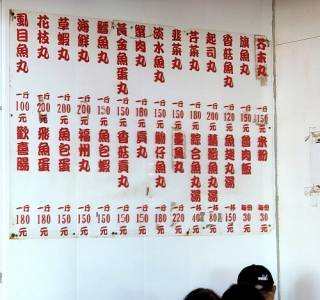 芥末丸 一斤 150元
旗魚丸 一斤 150元
香菇魚丸 一斤 120元
起司丸 一斤 200元
芹菜丸 一斤 150元
韭菜丸 一斤 150元
淡水魚丸 一斤 150元
蟹肉丸 一斤 180元
黃金魚蛋丸 一斤 150元
鱈魚丸 一斤 150元
海鮮丸 一斤 200元
草蝦丸 一斤 200元
花枝丸 一斤 200元
虱目魚丸 一斤 100元
米粉 每份 30元
魯肉飯 每份 30元
魚翅丸湯
魚丸湯
綜合魚丸湯 一杯 40元
墨魚丸 一斤 220元
仔魚丸 一斤 180元
貢丸 一斤 150元
香菇貢丸 一斤 150元
魚包蝦 一斤 150元
福州丸 一斤 150元
魚包蛋 一斤 150元
飛魚丸 一斤 180元
歡喜腸 一斤 180元